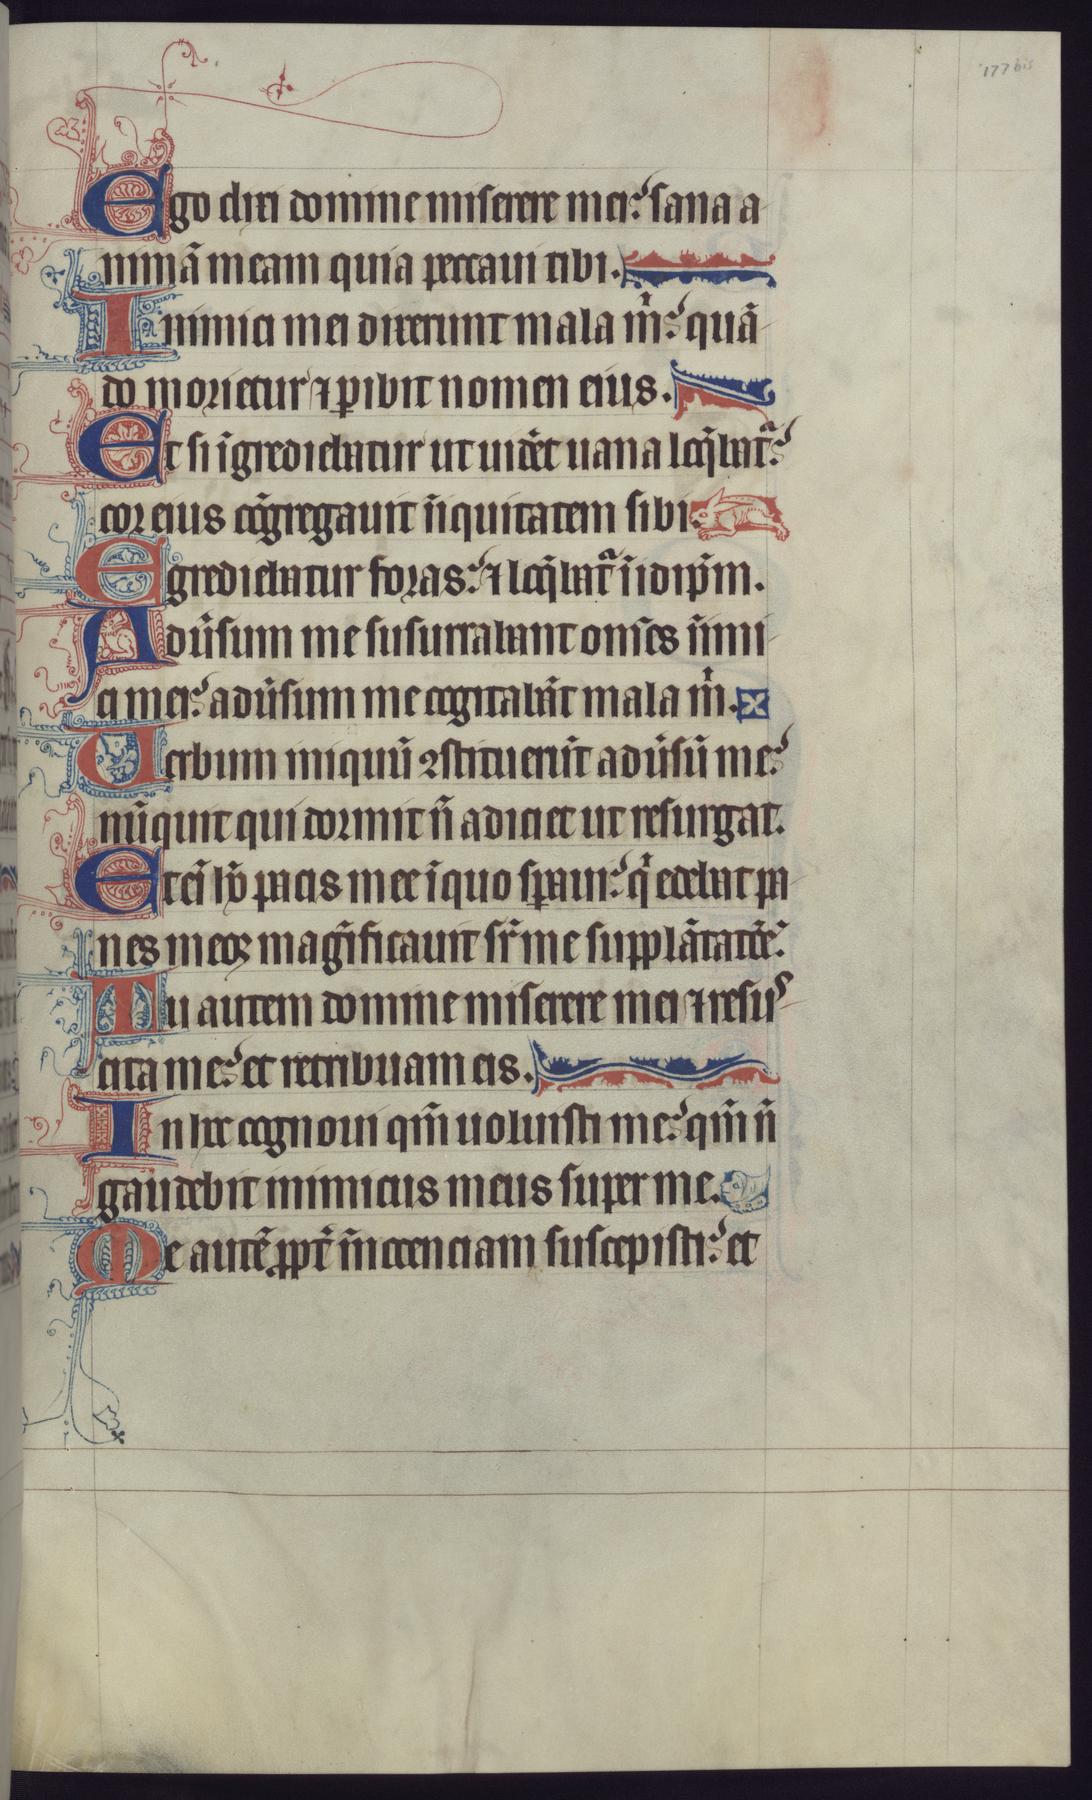 177 bis
Ego dixi domine miserere mei: sana a
nimā meam quia peccavi tibi.
Inimici mei dixerunt mala m̄: quā
do morietur ⁊ ꝑibit nomen eius.
Et si īgrediebatur ut uidēt uana loq̄bat᷑:
cor eius cōgregauit īiquitatem sibi.
Egrediebatur foras: ⁊ loq̄bat᷑ ī idip̄m.
Aduūsum me susurrabant om̄es inimi
ci mei: aduūsum me cogitabāt mala m̄.
Uerbum iniquū ꝯstituerūt aduūsū me:
nūquit qui dormit n̄ adiciet ut resurgat.
Etei hō pacis mee ī quo sꝑaui: q̄ edebat pa
nes meos magīficauit sr̄ me supplātatōē:
Tu autem domine miserere mei ⁊ resus
cita me: et retribuam eis.
In hoc cognoui qm̄ uoluisti me: qm̄ n̄
gaudebit inimicus meus super me.
Me autē ꝓpt̄ īnocenciam suscepisti: et